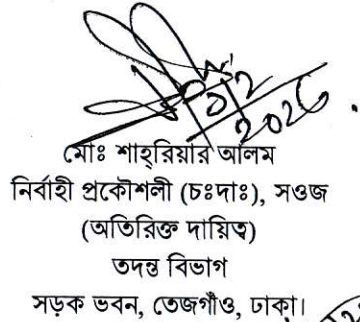 মোঃ শাহ্‌রিয়ার আলম
নির্বাহী প্রকৌশলী (চঃদাঃ), সওজ
(অতিরিক্ত দায়িত্ব)
তদন্ত বিভাগ
সড়ক ভবন, তেজগাঁও, ঢাকা।